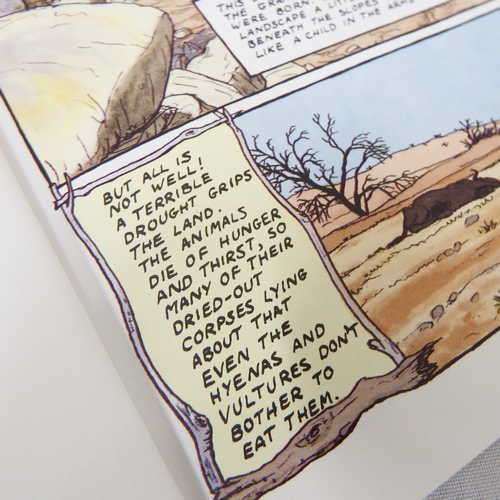 THIS
THE GRA
WERE BORN.
LANDSCAPE A LITT
BENEATH THE SLOPES
LIKE A CHILD IN THE ARMS
BUT ALL IS
NOT WELL;
A TERRIBLE
DROUGHT GRIPS
THE LAND.
THE ANIMALS
DIE OF HUNGER
AND THIRST, SO
MANY OF THEIR
DRIED-OUT
CORPSES LYING
ABOUT THAT
EVEN THE
HYENAS AND
VULTURES DON'T
BOTHER TO
EAT THEM.